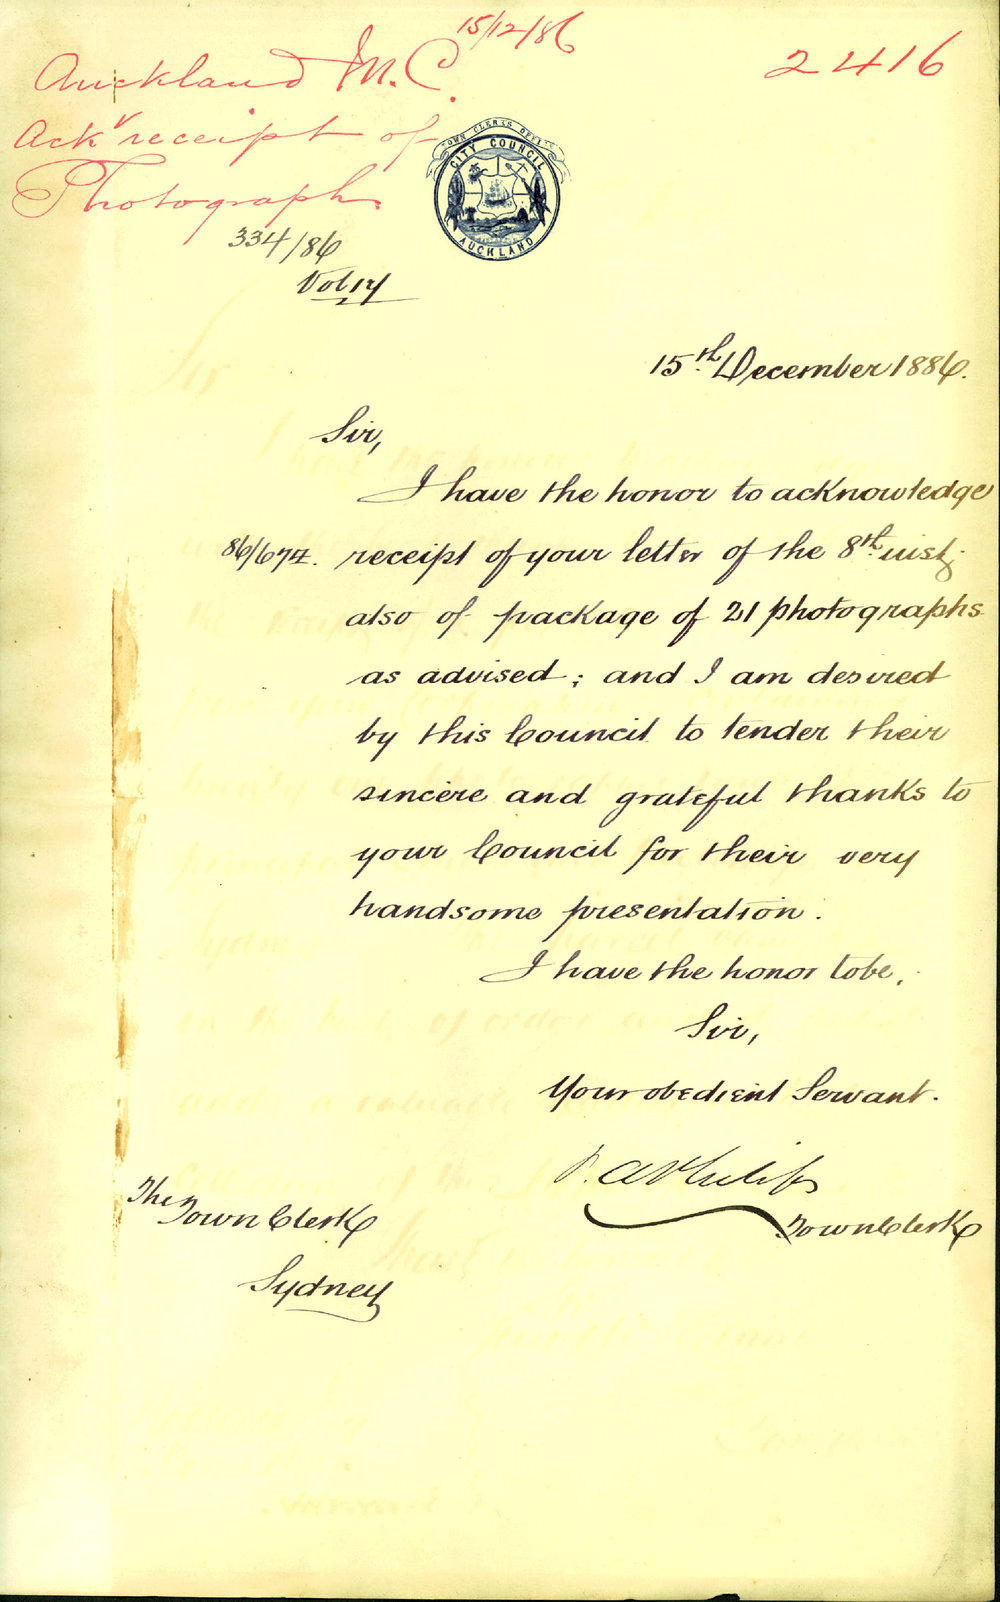 15/12/86
Auckland M.C.
2416
Ackg receipt of
Photograph
334/86
Vol 14
TOWN CLERKS OFFICE
CITY COUNCIL
AUCKLAND
15th December 1886.
Sir,
I have the honor to acknowledge
86/674. receipt of your letter of the 8th inst;
also of package of 21 photographs
as advised; and I am desired
by this Council to tender their
sincere and grateful thanks to
your Council for their very
handsome presentation.
I have the honor to be,
Sir,
Your obedient Servant.
P. A. Philips
Town Clerk
The Town Clerk
Sydney